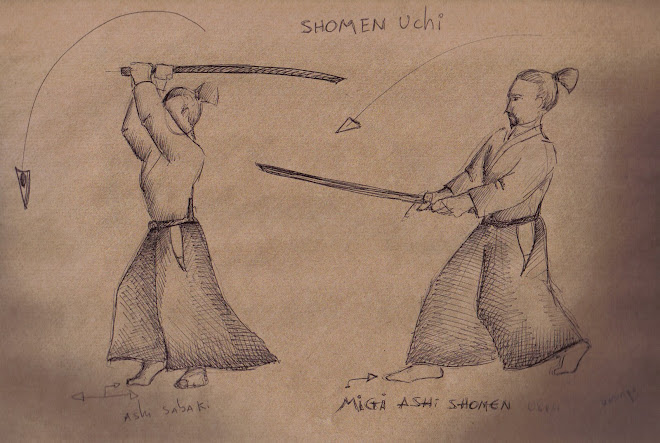 SHOMEN Uchi
ASHI SabaKi
MiGi ASHI SHOMEN